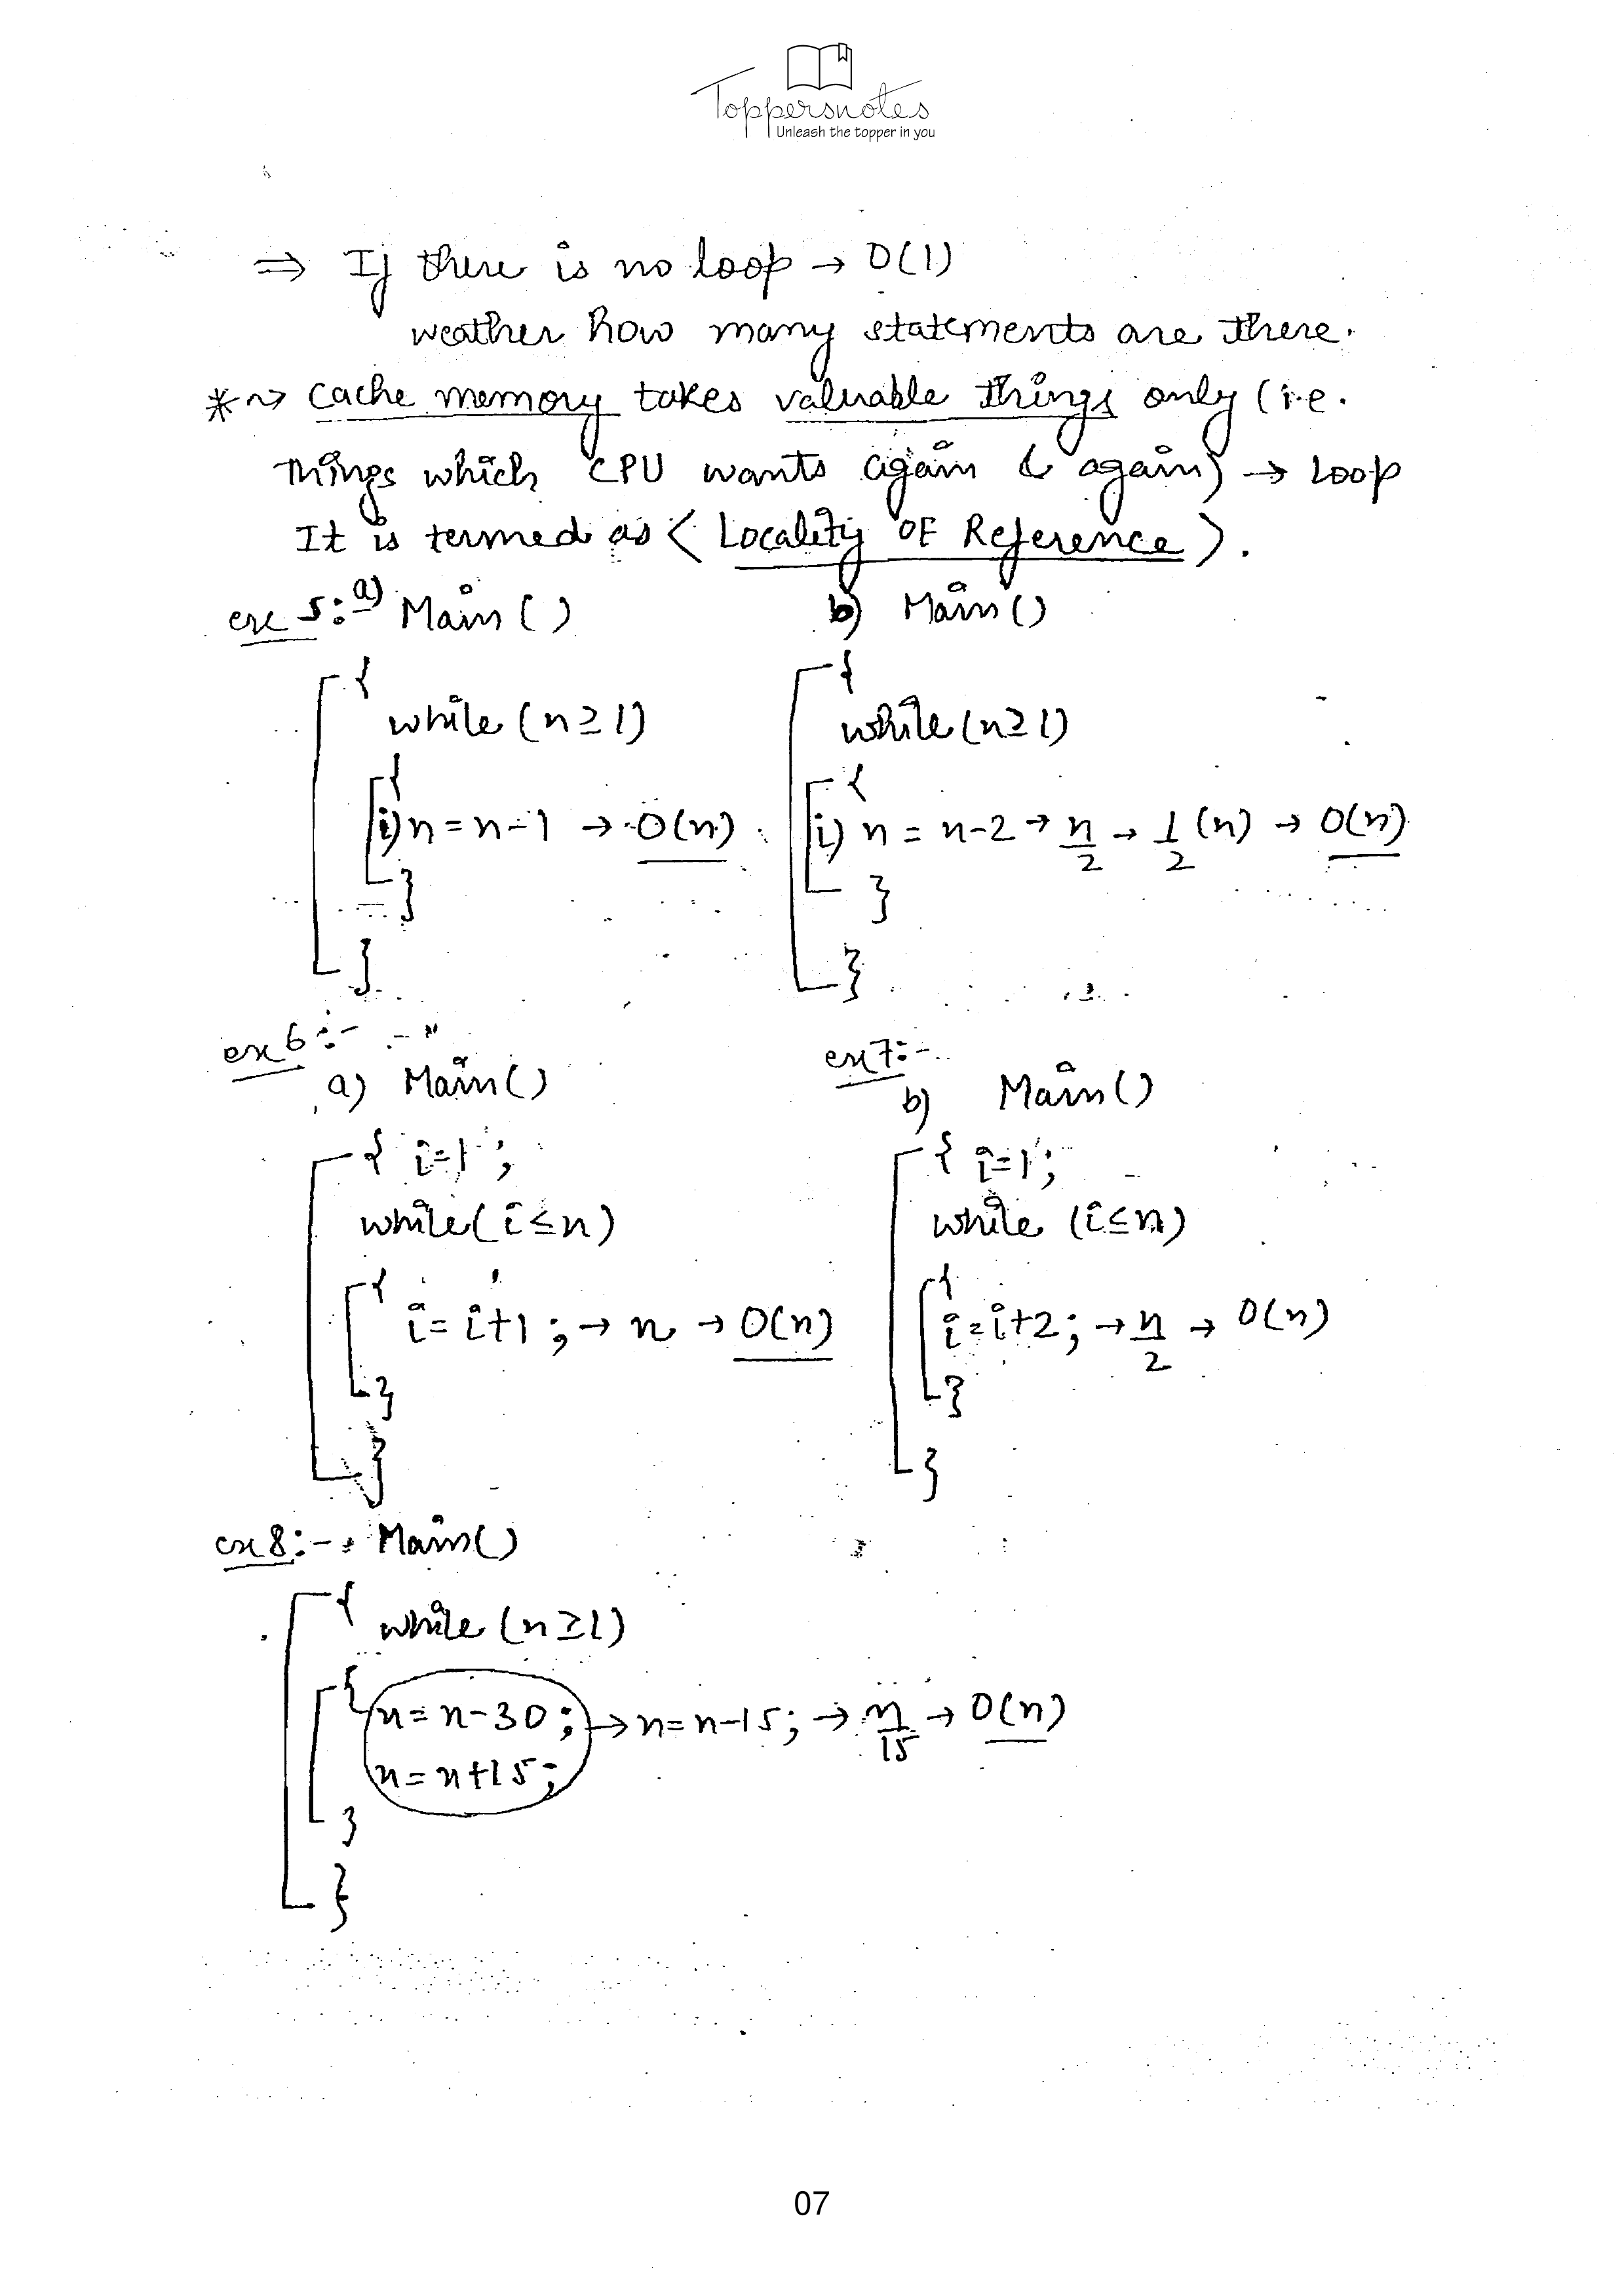 Toppersnotes
Unleash the topper in you
⇒ If there is no loop → O(1)
weather how many statements are there.
* ~> Cache memory takes valuable things only (i.e.
things which CPU wants again & again) → Loop
It is termed as < Locality OF Reference > .
ex 5:- a) Main ( )
{
while (n ≥ 1)
{
i) n = n-1 → O(n)
}
}
b) Main ( )
{
while (n ≥ 1)
{
i) n = n-2 → n/2 → 1/2 (n) → O(n)
}
}
ex 6 :-
a) Main ( )
{ i=1 ;
while ( i ≤ n )
{
i = i+1 ; → n → O(n)
}
}
ex 7:-
b) Main ( )
{ i=1 ;
while (i ≤ n)
{
i = i+2 ; → n/2 → O(n)
}
}
ex 8:- Main ( )
{
while (n ≥ 1)
{
n = n-30 ; → n = n-15 ; → n/15 → O(n)
n = n+15 ;
}
}
07